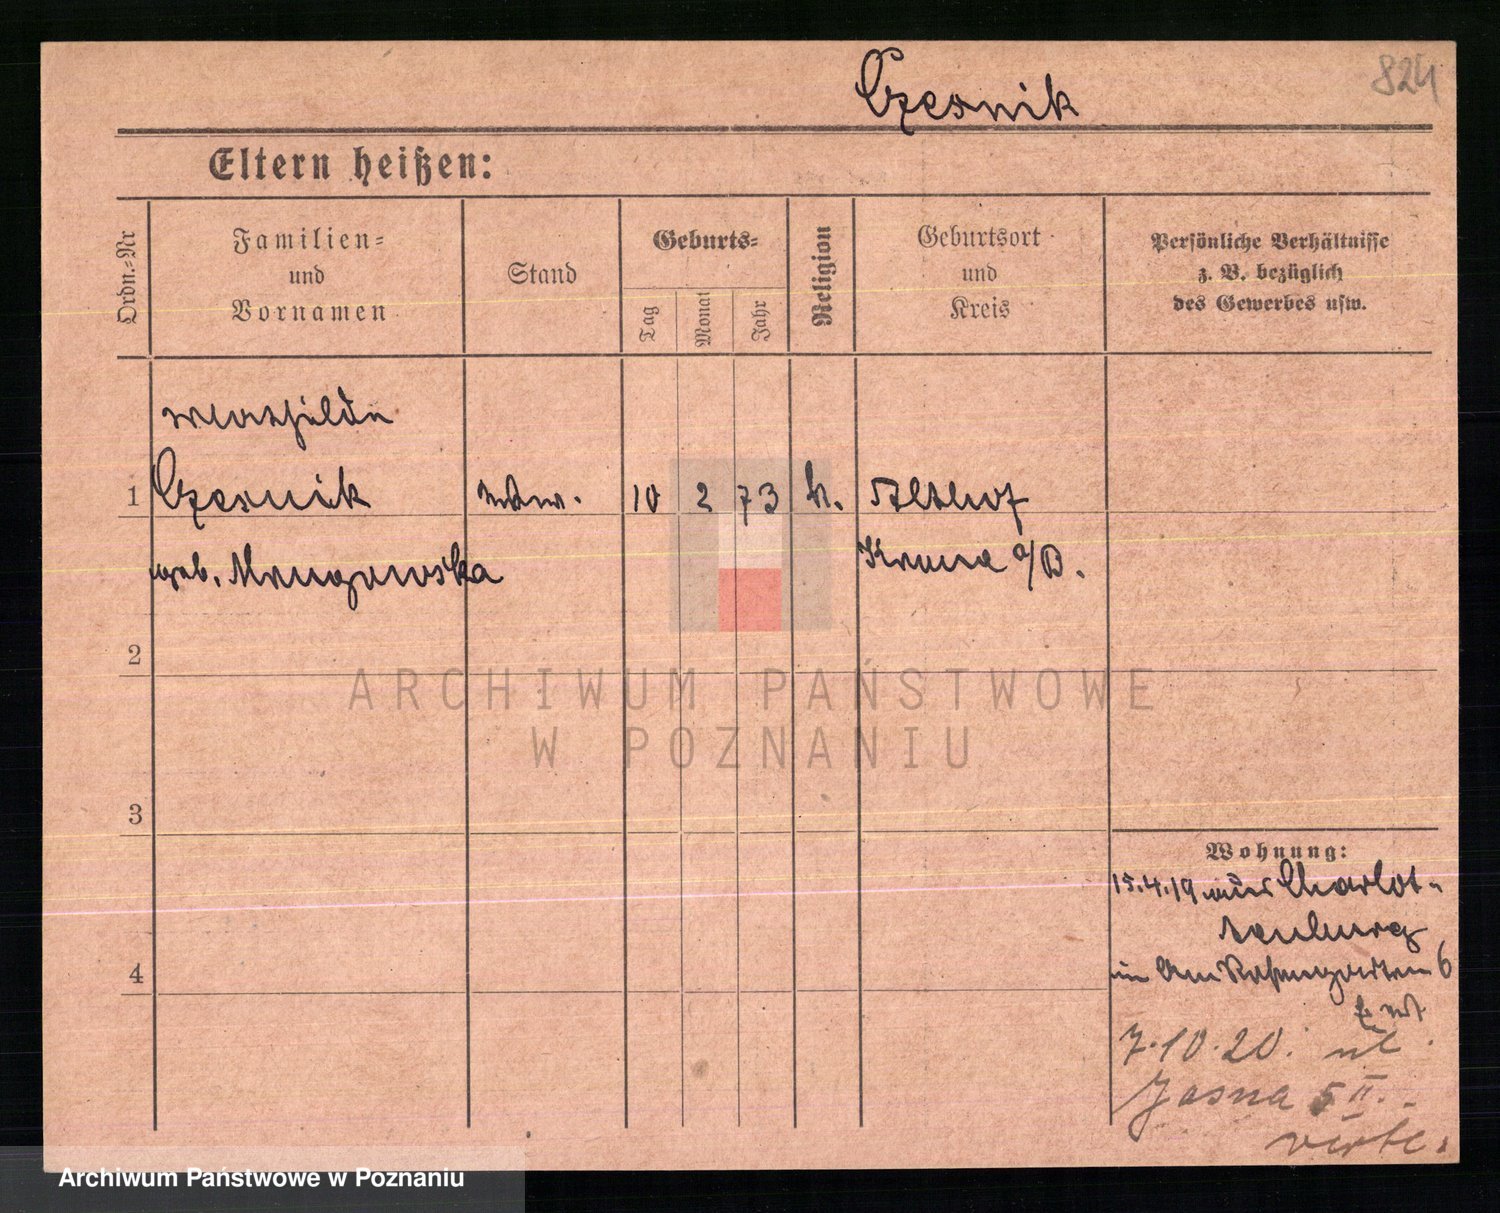 Czernik
824
Eltern heißen:
Ordn.-Nr
Familien- und Vornamen
Stand
Geburts-
Tag
Monat
Jahr
Religion
Geburtsort und Kreis
Persönliche Verhältnisse
z. B. bezüglich
des Gewerbes usw.
Mathilde
1 Czernik 10 2 73 k. Althof
geb. Mrugowska Krone a/B.
2
ARCHIWUM PAŃSTWOWE
W POZNANIU
3
Wohnung:
15.4.19 aus Charlot-
tenburg
Am Rosengarten 6
4
7.10.20. ul.
Jasna 5 II.
Archiwum Państwowe w Poznaniu